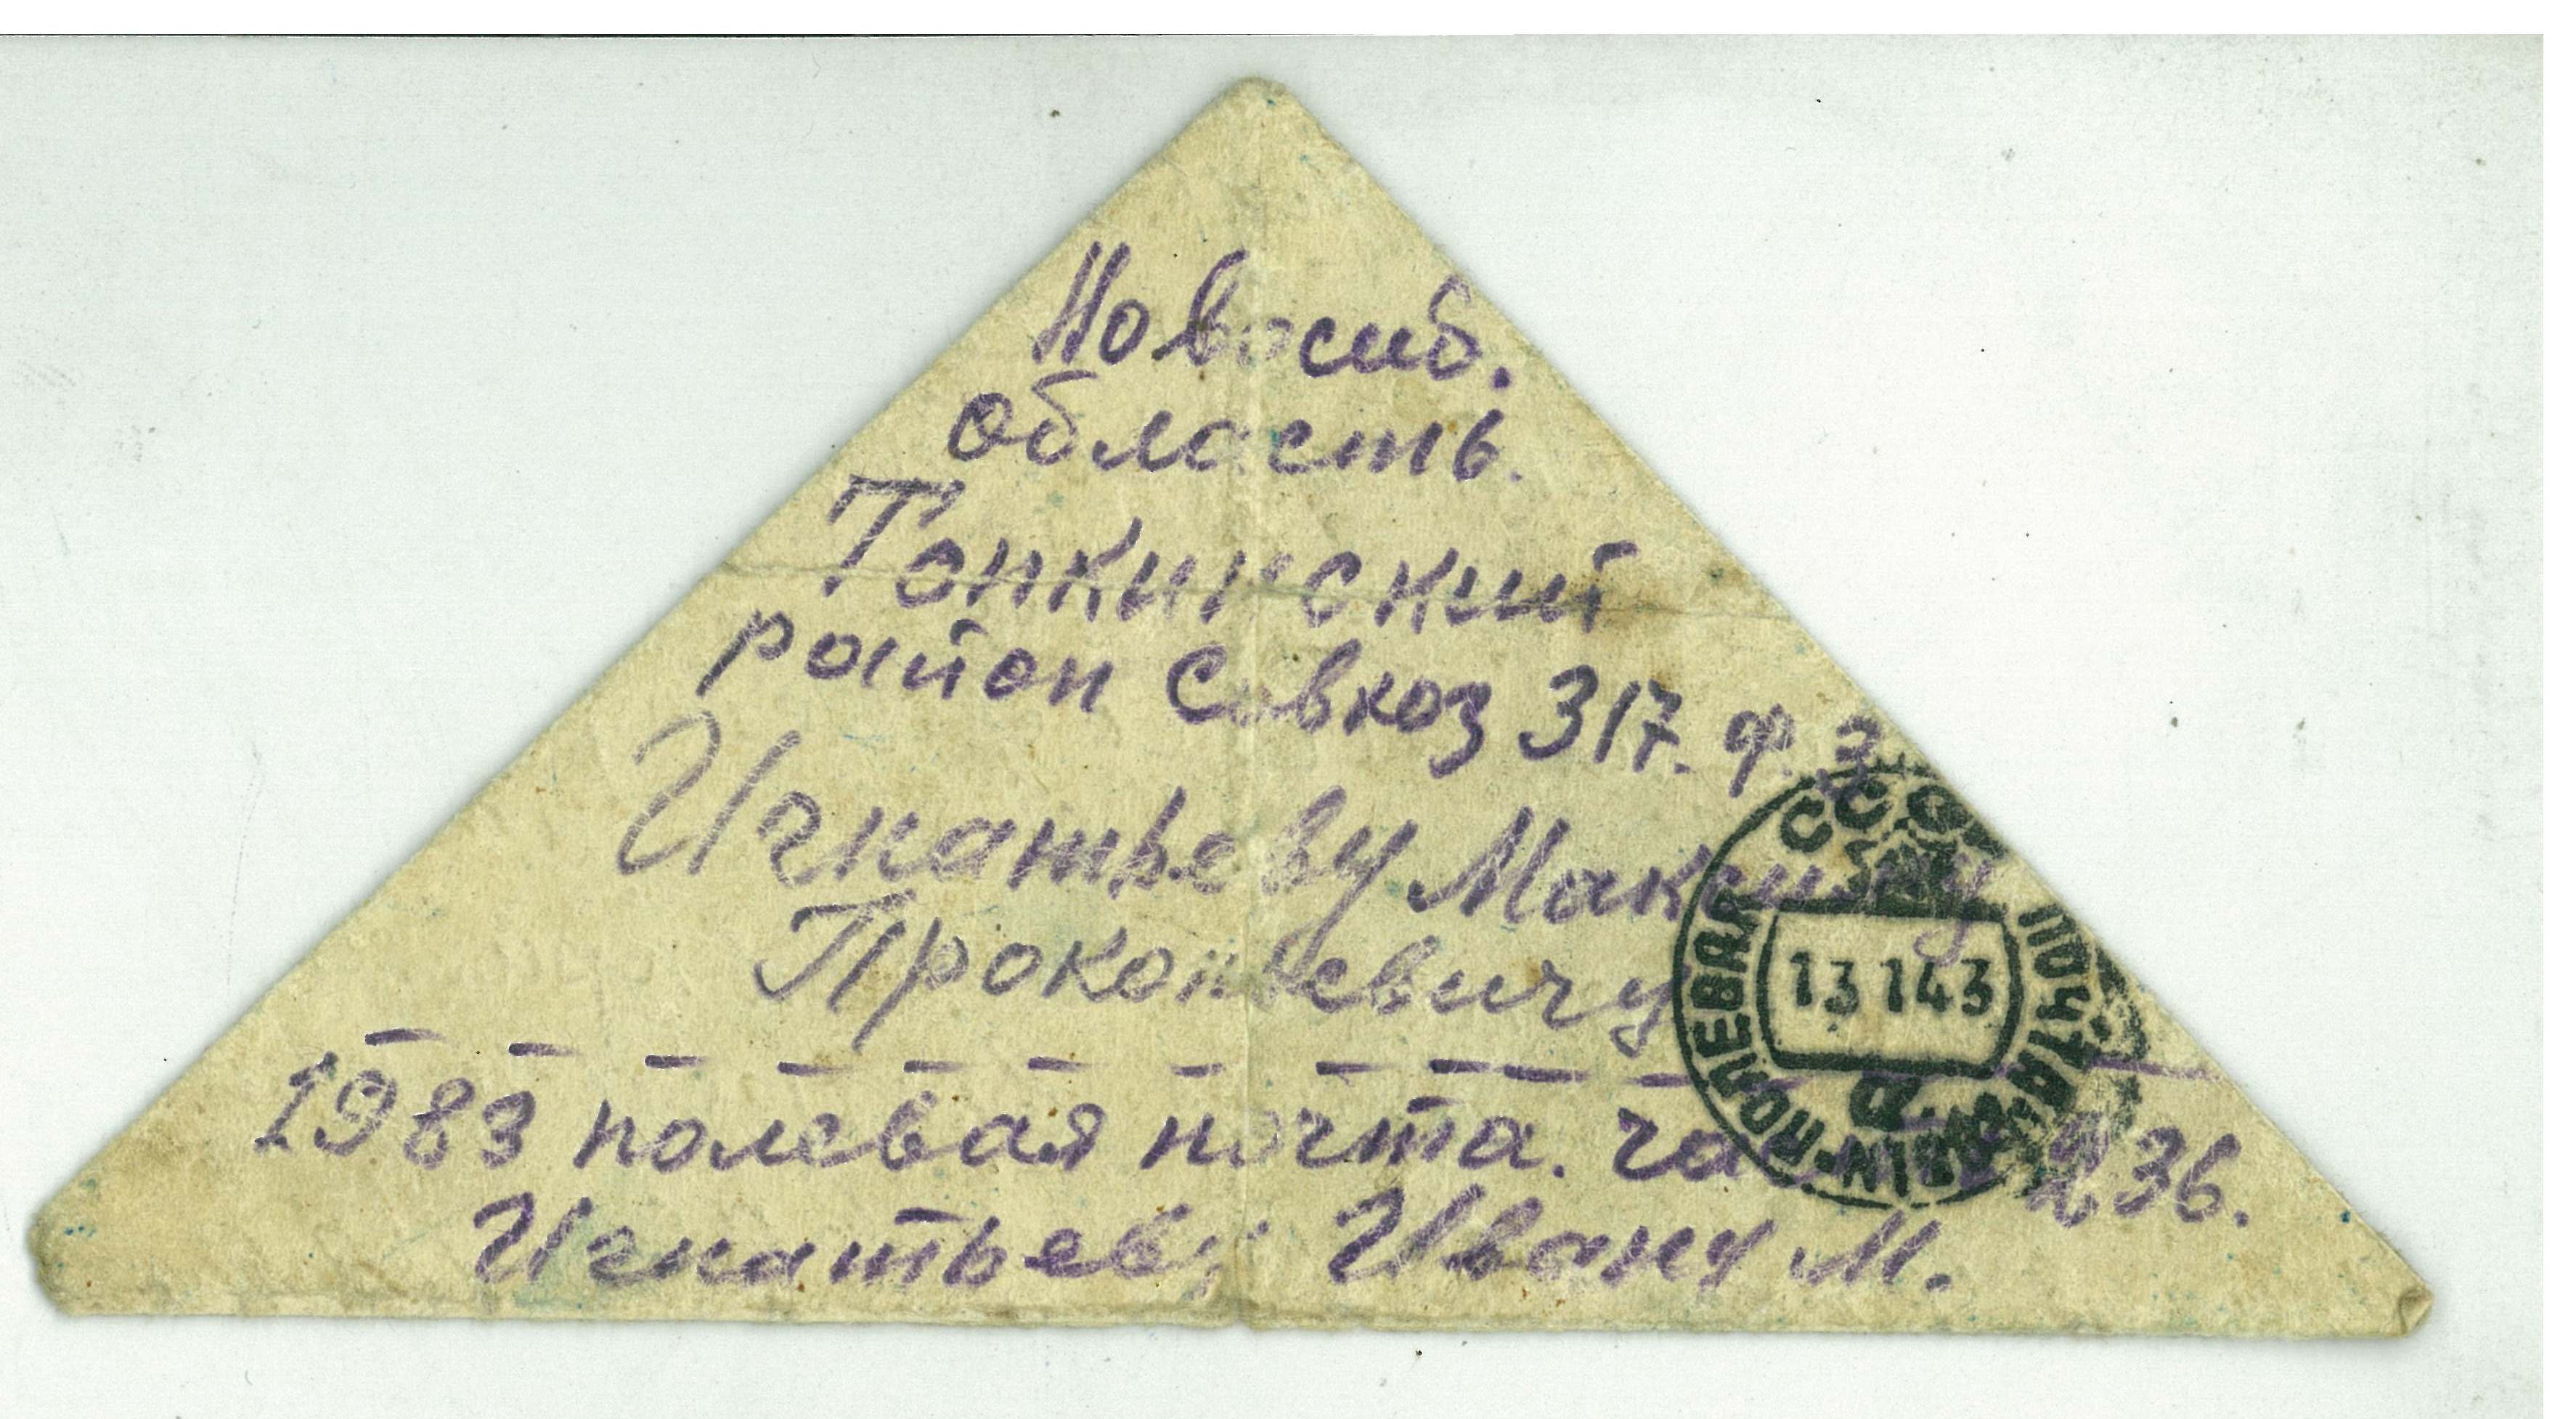 Новосиб.
область.
Тонкинский
район Совхоз 317. ф. 3
Игнатьеву Максиму
Прокопьевичу
1983 полевая почта. 236.
Игнатьеву Ивану М.
СССР
ПОЛЕВАЯ ПОЧТА
13 1 43